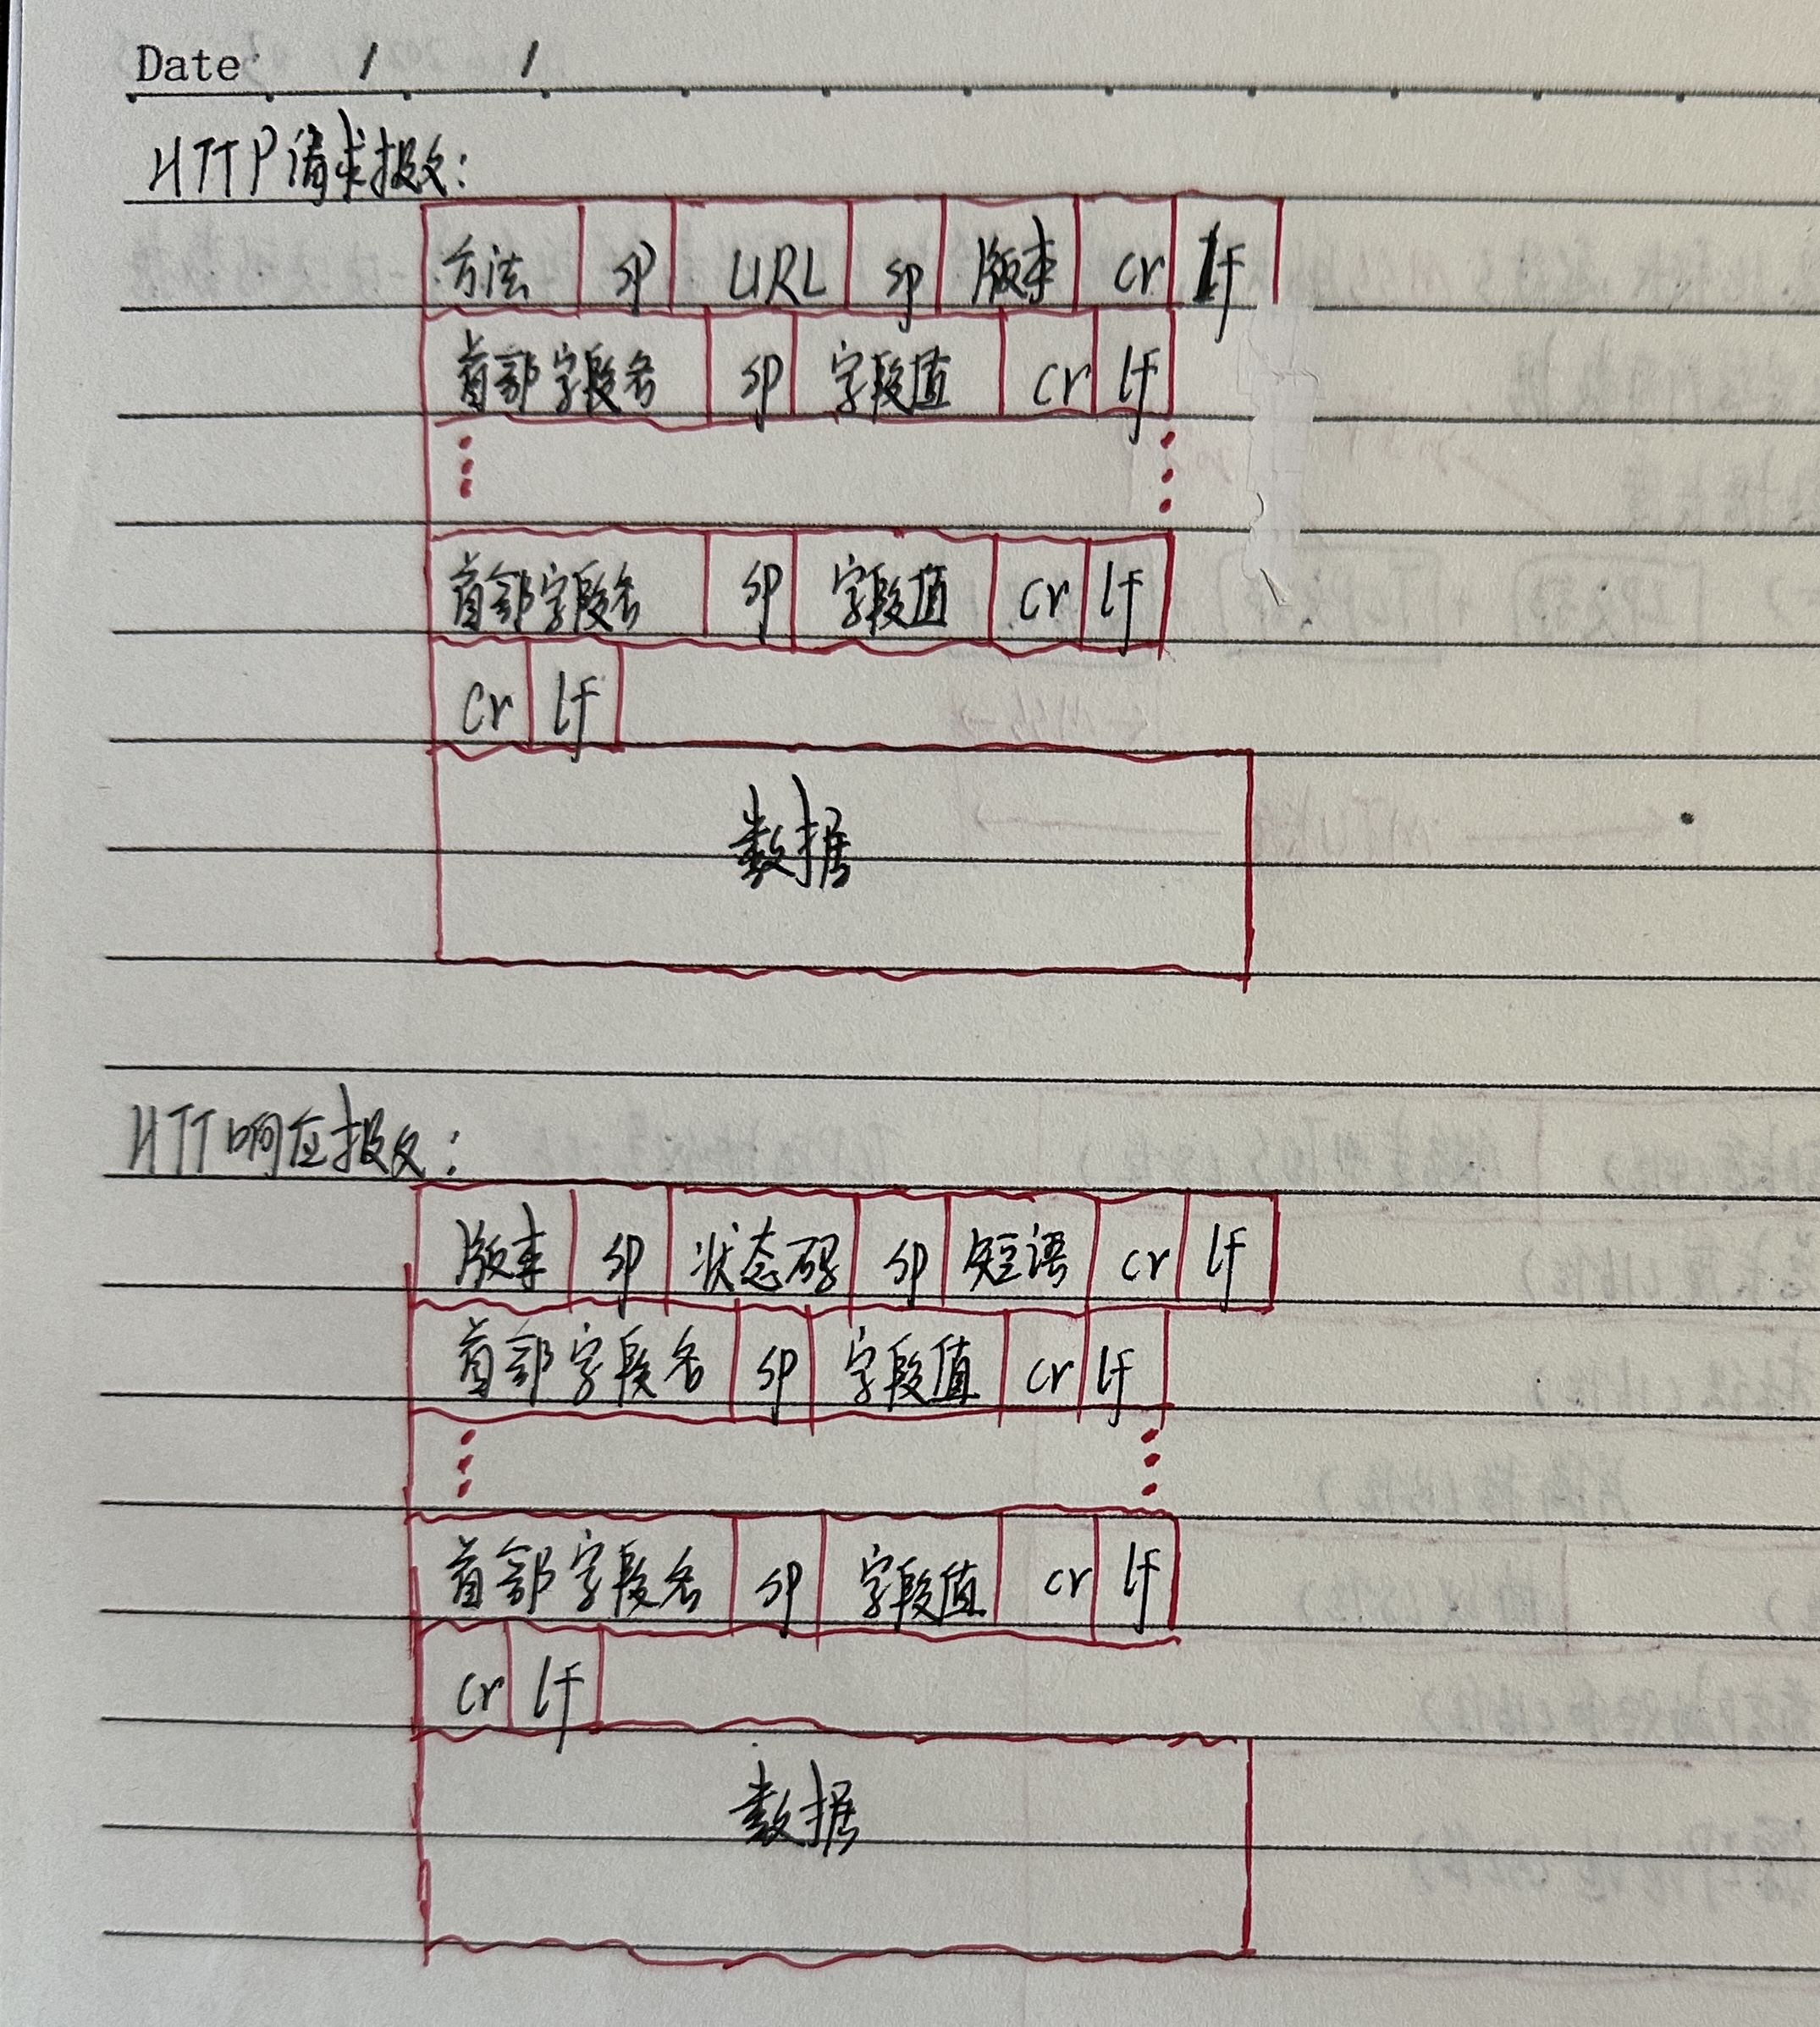 Date / /
HTTP请求报文:
方法 sp URL sp 版本 cr lf
首部字段名 sp 字段值 cr lf
首部字段名 sp 字段值 cr lf
cr lf
数据
HTT响应报文:
版本 sp 状态码 sp 短语 cr lf
首部字段名 sp 字段值 cr lf
首部字段名 sp 字段值 cr lf
cr lf
数据